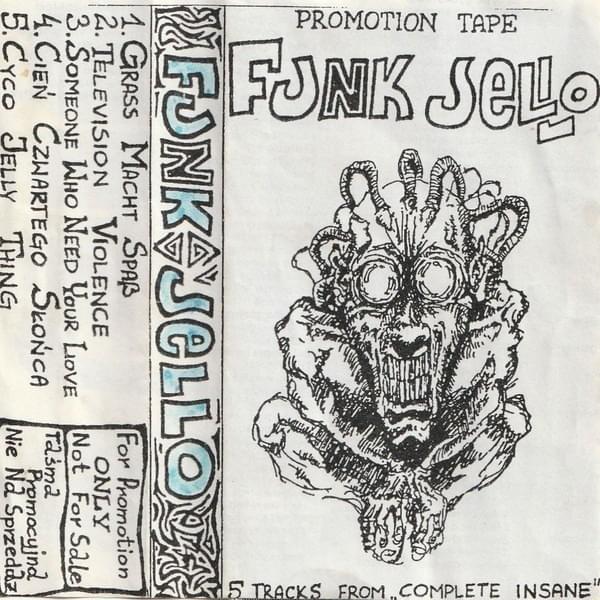 1. GRASS MACHT SPAß
2. TELEVISION VIOLENCE
3. SOMEONE WHO NEED YOUR LOVE
4. CIEŃ CZWARTEGO SŁOŃCA
5. CYCO JELLY THING
For Promotion
ONLY
Not For Sale
Taśma
Promocyjna
Nie Na Sprzedaż
FUNK JELLO
PROMOTION TAPE
FUNK JELLO
5 TRACKS FROM „COMPLETE INSANE"